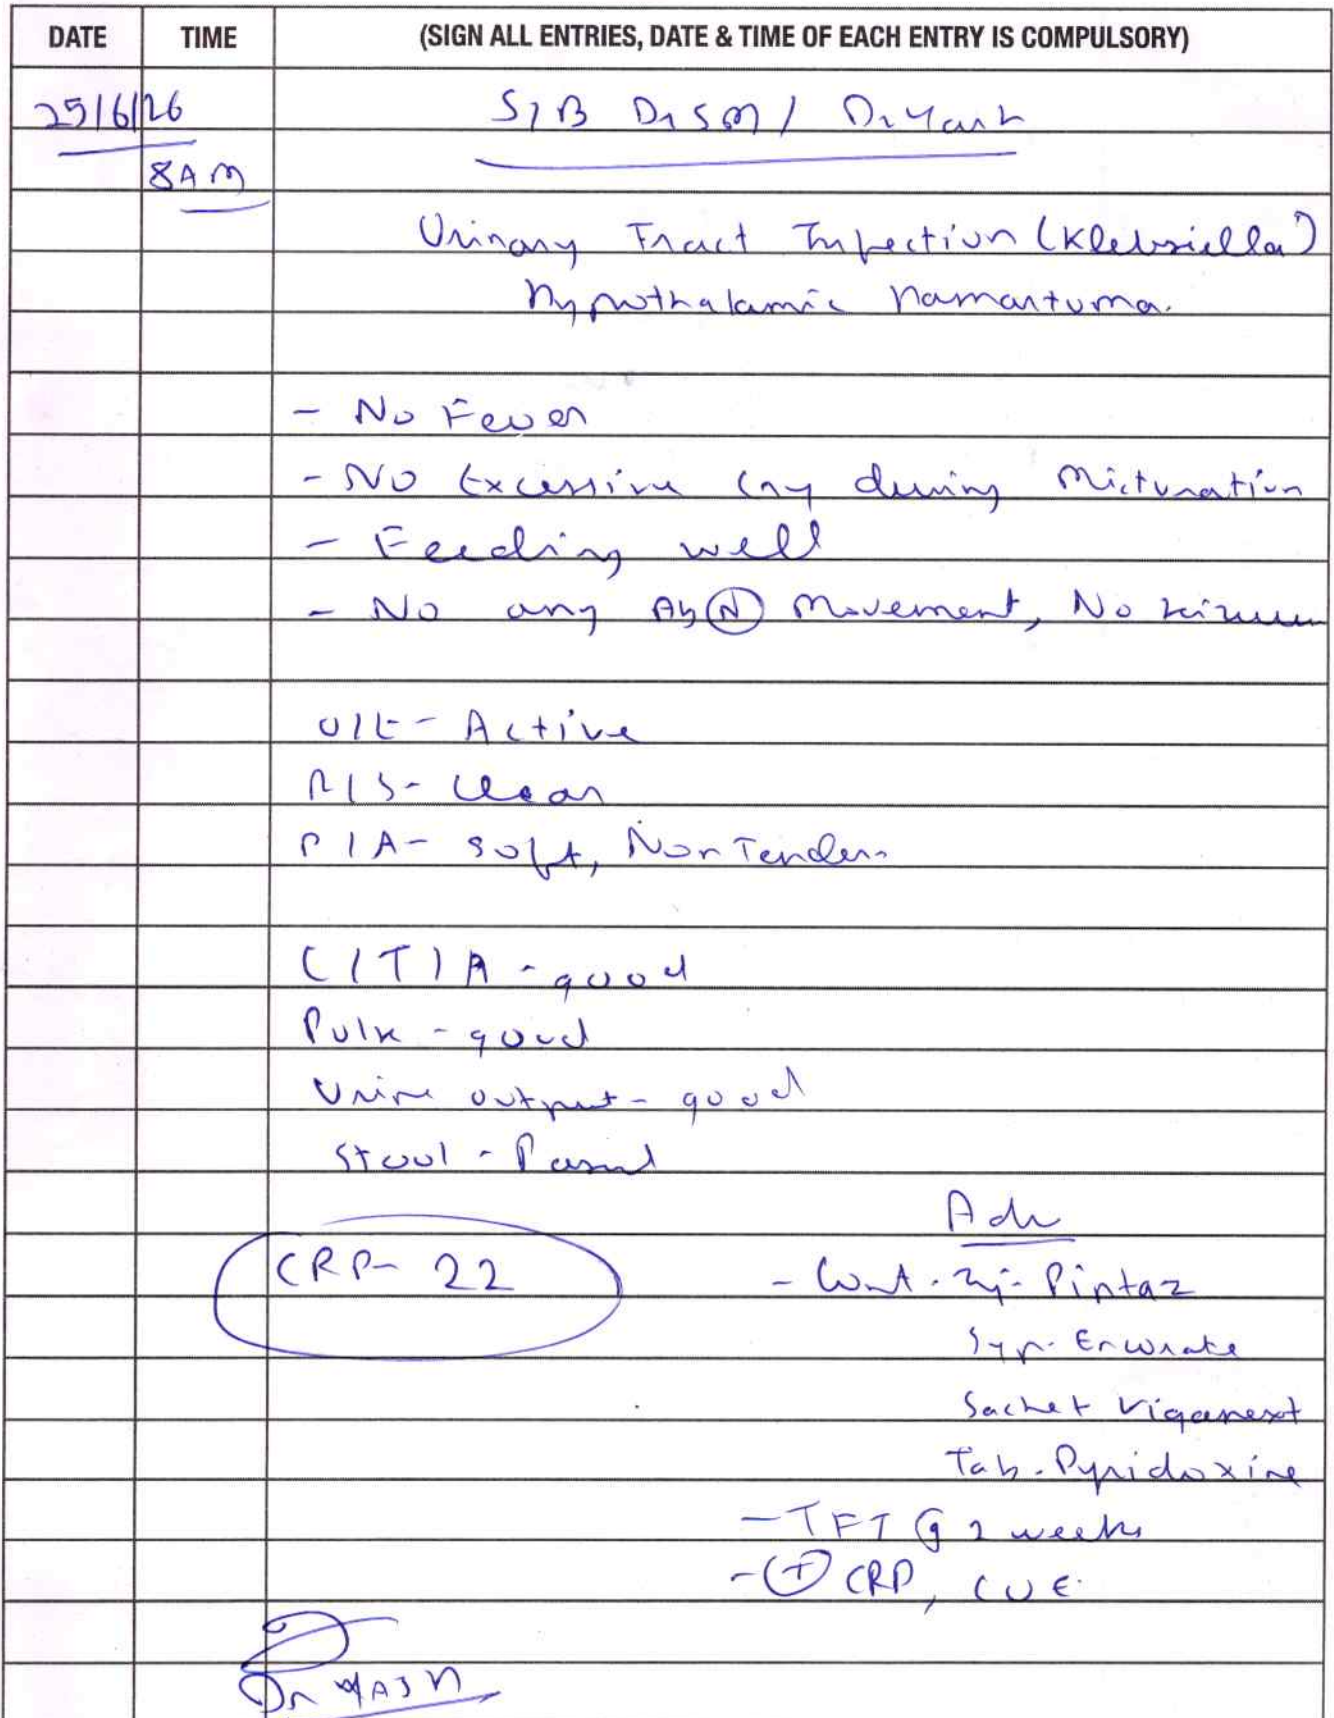 DATE TIME (SIGN ALL ENTRIES, DATE & TIME OF EACH ENTRY IS COMPULSORY)
25/6/26 S/B Dr SM / Dr Yash
8AM
Urinary Tract Infection (Klebsiella)
Hypothalamic Hamartoma.
- No Fever
- No Excessive cry during Micturation
- Feeding well
- No any Ab(N) Movement, No
O/E - Active
R/S - Clear
P/A - Soft, Non Tender
C/T/A - good
Pulse - good
Urine output - good
Stool - Passed
Adv
CRP - 22 - Cont. Inj. Piptaz
Syp. Encorate
Sachet Viganext
Tab. Pyridoxine
- TFT 2 weeks
- CRP, CUE
Dr YASH